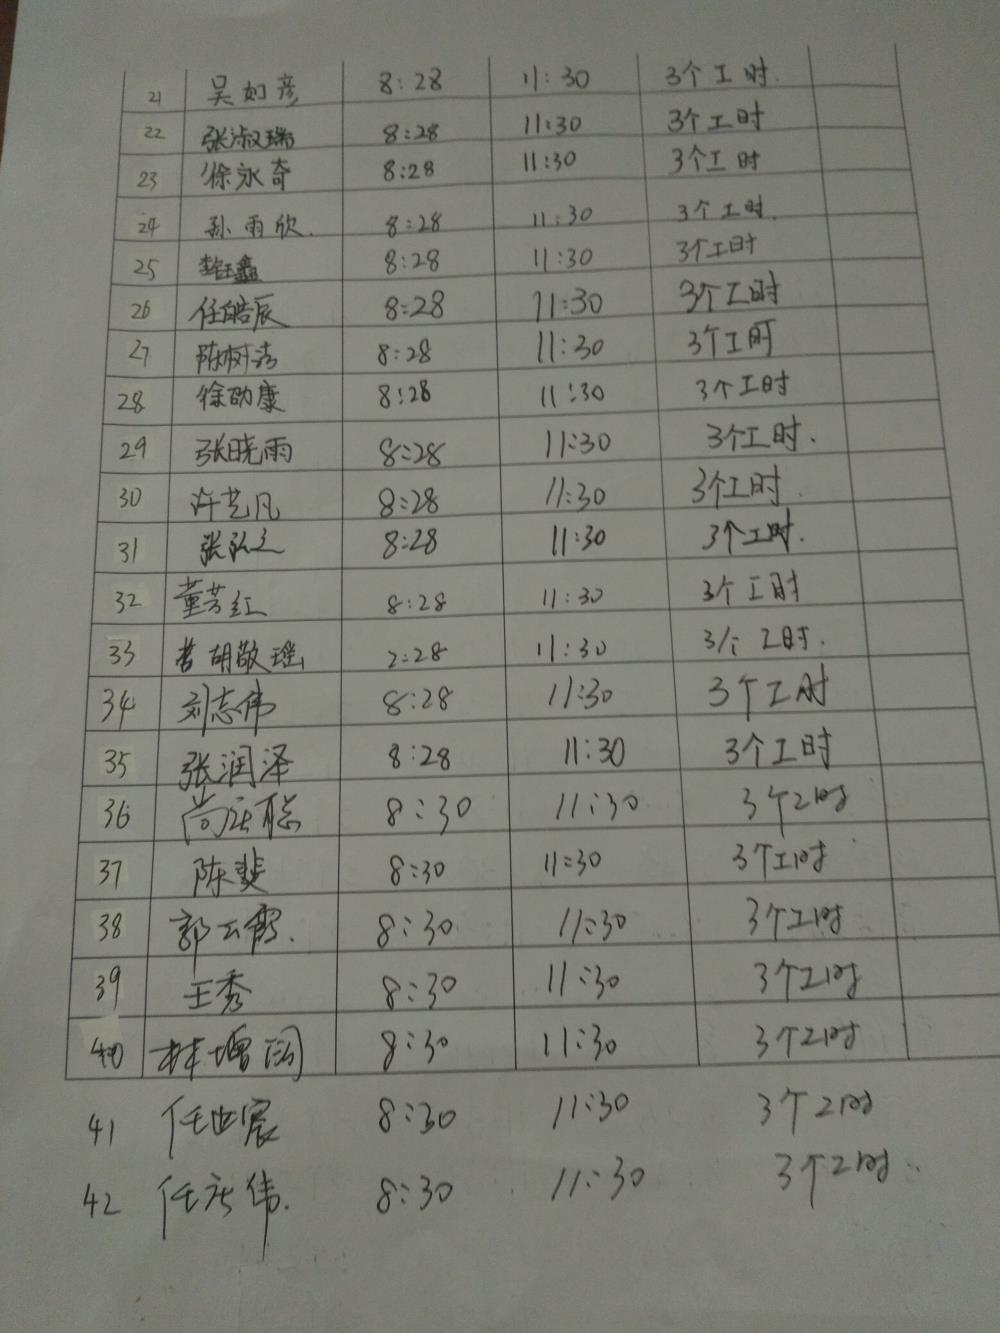 21 吴如彦 8:28 11:30 3个工时.
22 张淑瑞 8:28 11:30 3个工时
23 徐永奇 8:28 11:30 3个工时
24 孙雨欣. 8:28 11:30 3个工时.
25 李钰鑫 8:28 11:30 3个工时
26 任皓辰 8:28 11:30 3个工时
27 陈树涛 8:28 11:30 3个工时
28 徐劭康 8:28 11:30 3个工时
29 张晓雨 8:28 11:30 3个工时.
30 许艺凡 8:28 11:30 3个工时.
31 张弘之 8:28 11:30 3个工时.
32 董芳红 8:28 11:30 3个工时
33 胡敬瑶 2:28 11:30 3个工时.
34 刘志伟 8:28 11:30 3个工时
35 张润泽 8:28 11:30 3个工时
36 尚庆聪 8:30 11:30 3个工时
37 陈斐 8:30 11:30 3个工时
38 郭云霞. 8:30 11:30 3个工时
39 王秀 8:30 11:30 3个工时
40 林增阔 8:30 11:30 3个工时
41 任世宸 8:30 11:30 3个工时
42 任庆伟. 8:30 11:30 3个工时.